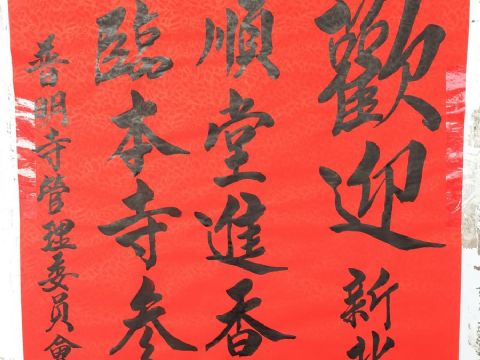 歡迎新北
順堂進香
臨本寺参
普明寺管理委員會